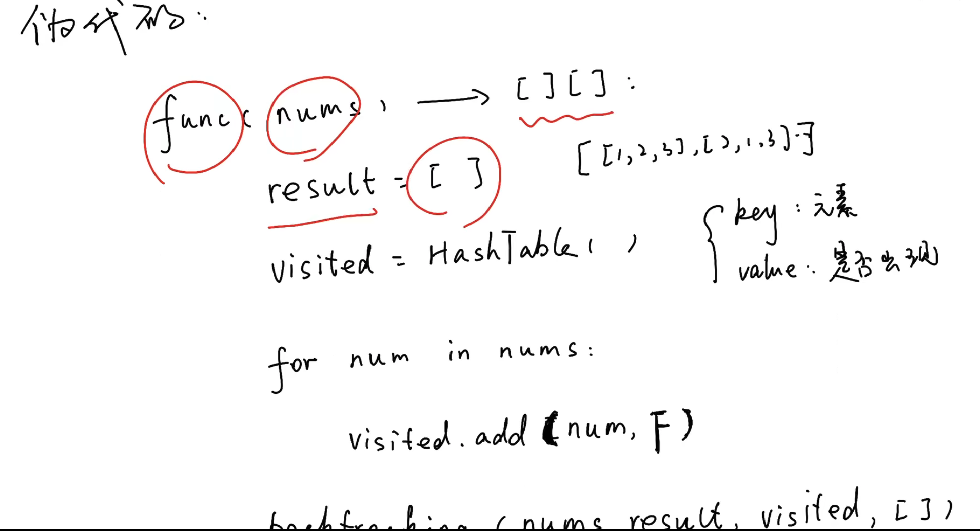 伪代码:
func(nums) → [][]:
[[1,2,3],[2,1,3]..]
result = [ ]
visited = HashTable( )
key : 元素
value : 是否出现
for num in nums:
visited.add (num, F)
backtracking (nums, result, visited, [])